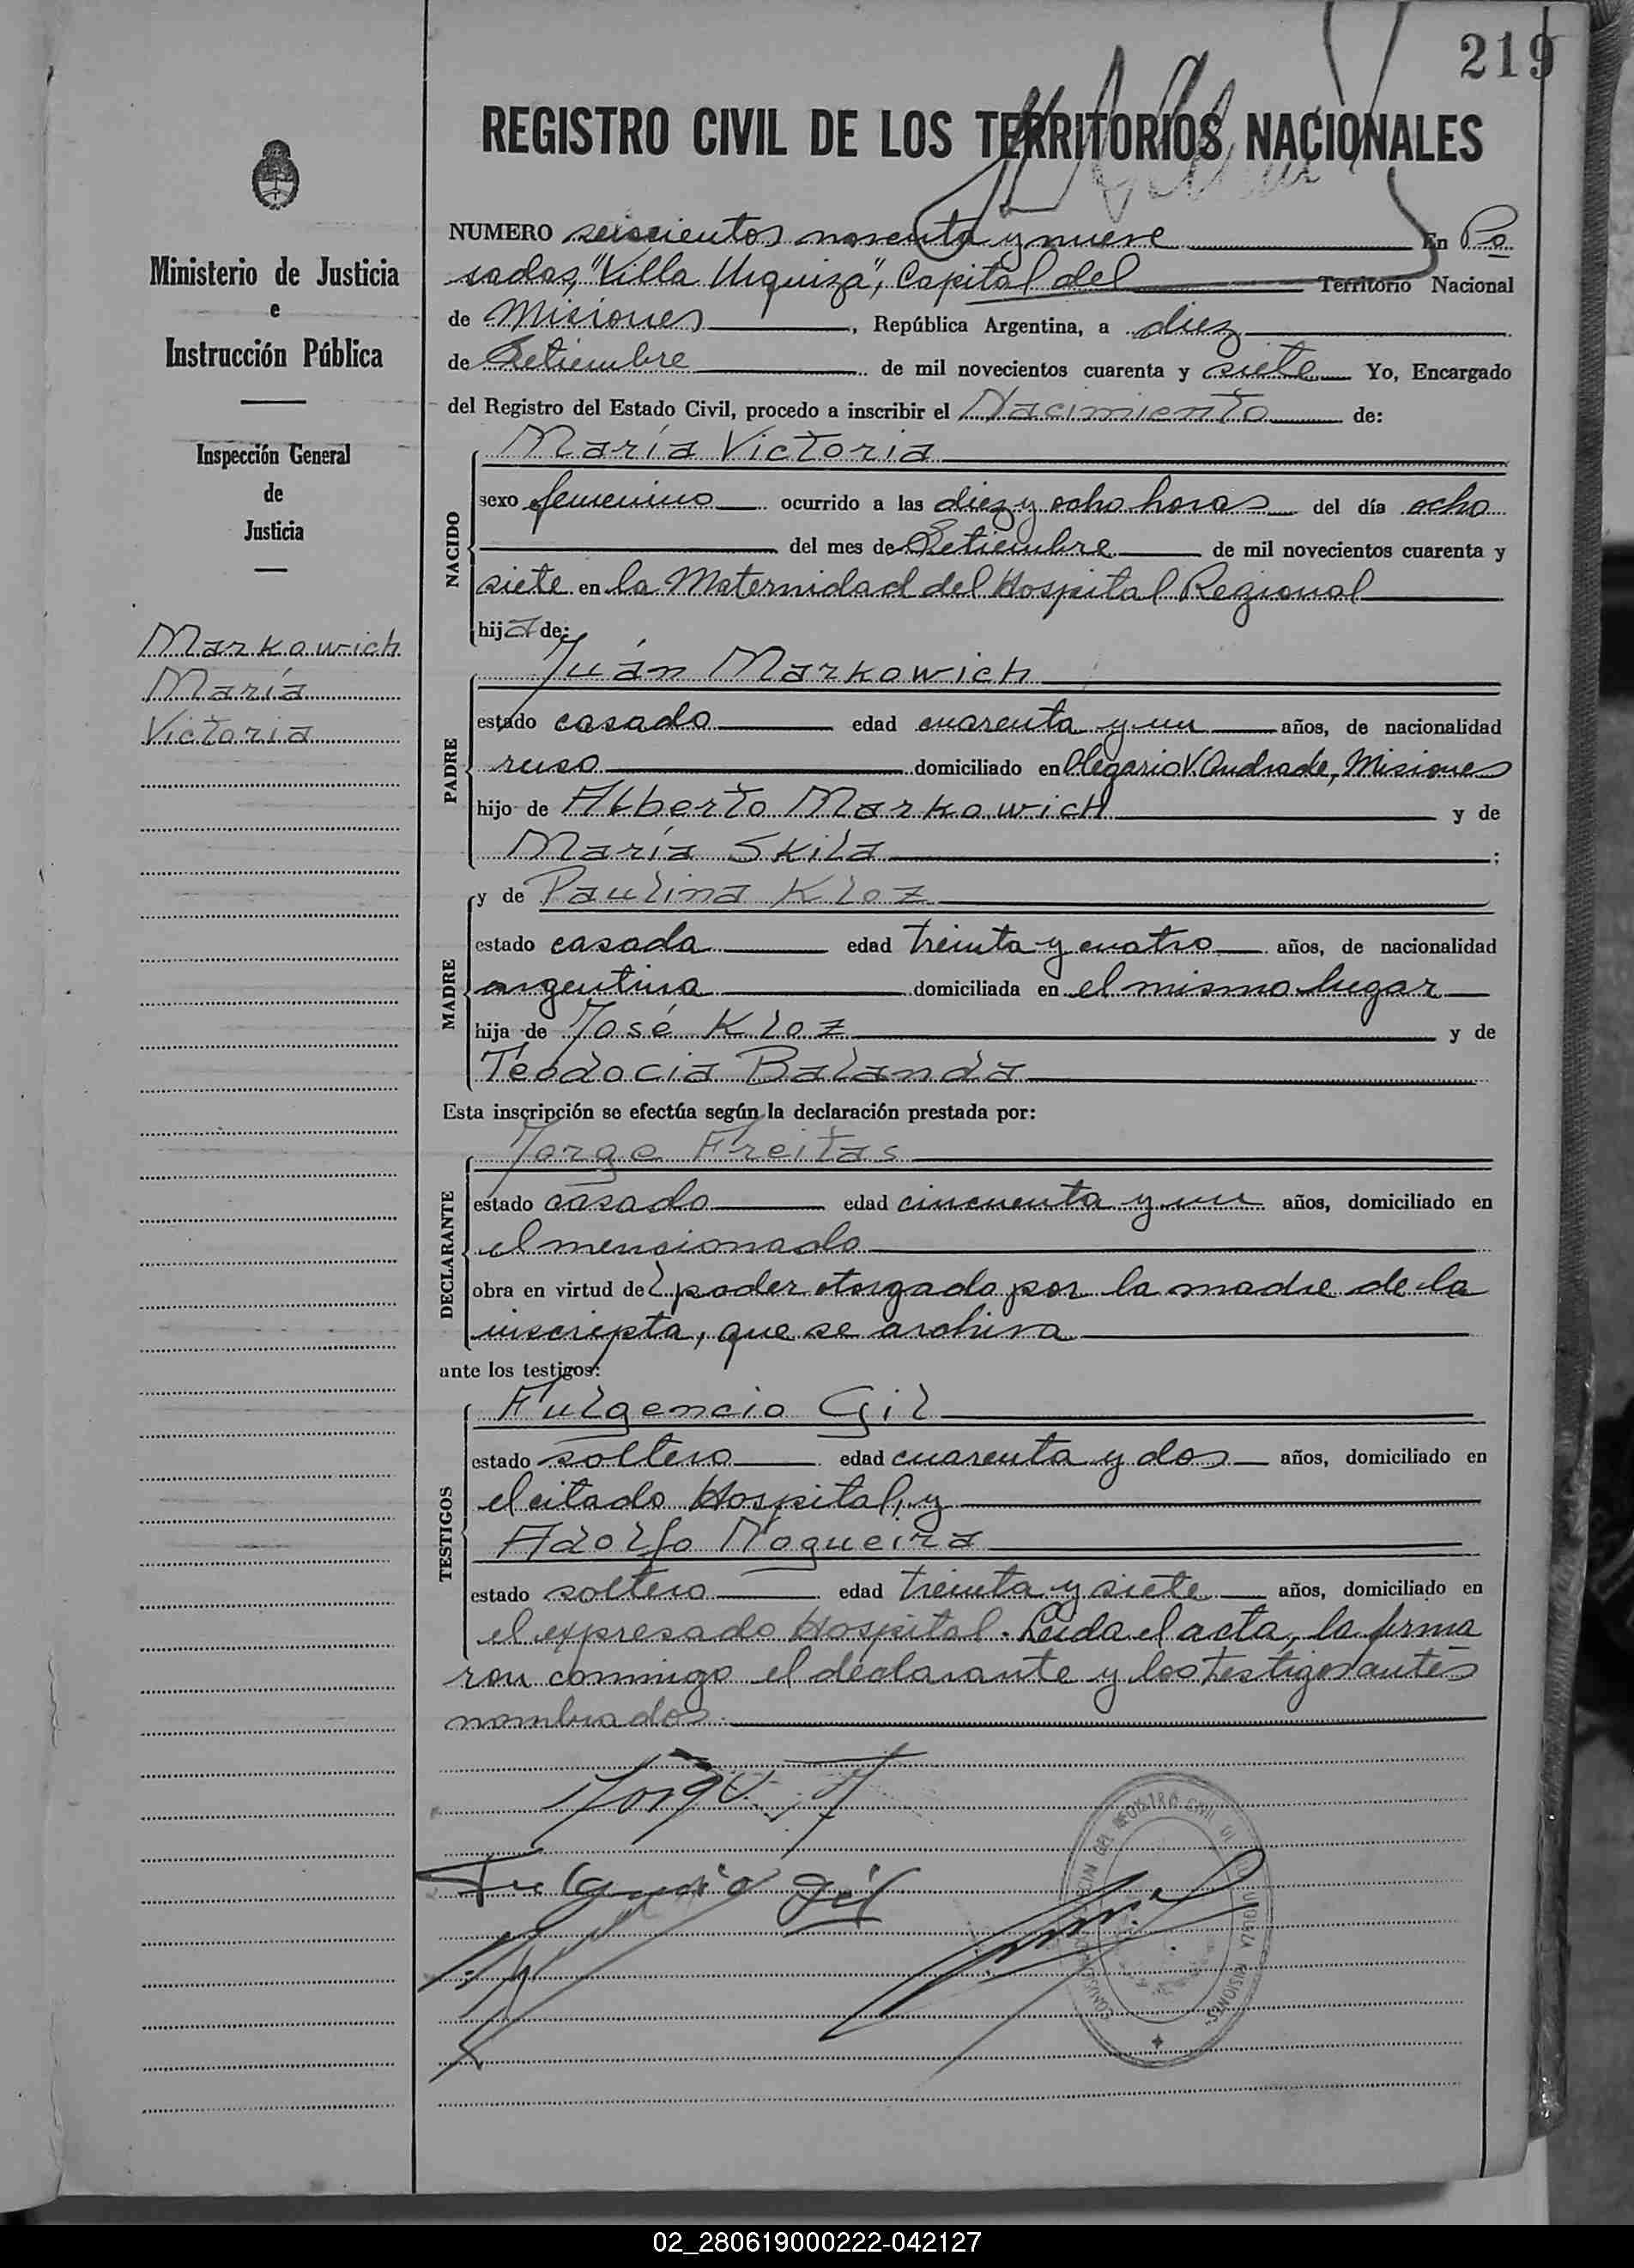 219
REGISTRO CIVIL DE LOS TERRITORIOS NACIONALES
Ministerio de Justicia
e
Instrucción Pública
Inspección General
de
Justicia
Markowich
María
Victoria
NUMERO seiscientos noventa y nueve En Po
sadas, "Villa Urquiza", Capital del Territorio Nacional
de Misiones, República Argentina, a diez
de Setiembre de mil novecientos cuarenta y siete Yo, Encargado
del Registro del Estado Civil, procedo a inscribir el Nacimiento de:
NACIDO
María Victoria
sexo femenino ocurrido a las diez y ocho horas del día ocho
del mes de Setiembre de mil novecientos cuarenta y
siete en la Maternidad del Hospital Regional
hija de:
PADRE
Juán Markowich
estado casado edad cuarenta y un años, de nacionalidad
ruso domiciliado en Olegario V. Andrade, Misiones
hijo de Alberto Markowich y de
María Skila;
MADRE
y de Paulina Kloz
estado casada edad treinta y cuatro años, de nacionalidad
argentina domiciliada en el mismo lugar
hija de José Kloz y de
Teodocia Balanda
Esta inscripción se efectúa según la declaración prestada por:
DECLARANTE
Jorge Freitas
estado casado edad cincuenta y un años, domiciliado en
el mencionado
obra en virtud del poder otorgado por la madre de la
inscripta, que se archiva
ante los testigos:
TESTIGOS
Fulgencio Gil
estado soltero edad cuarenta y dos años, domiciliado en
el citado Hospital, y
Adolfo Nogueira
estado soltero edad treinta y siete años, domiciliado en
el expresado Hospital. Leida el acta, la firma
ron conmigo el declarante y los testigos antes
nombrados.
Jorge F
Fulgencio Gil
02_280619000222-042127